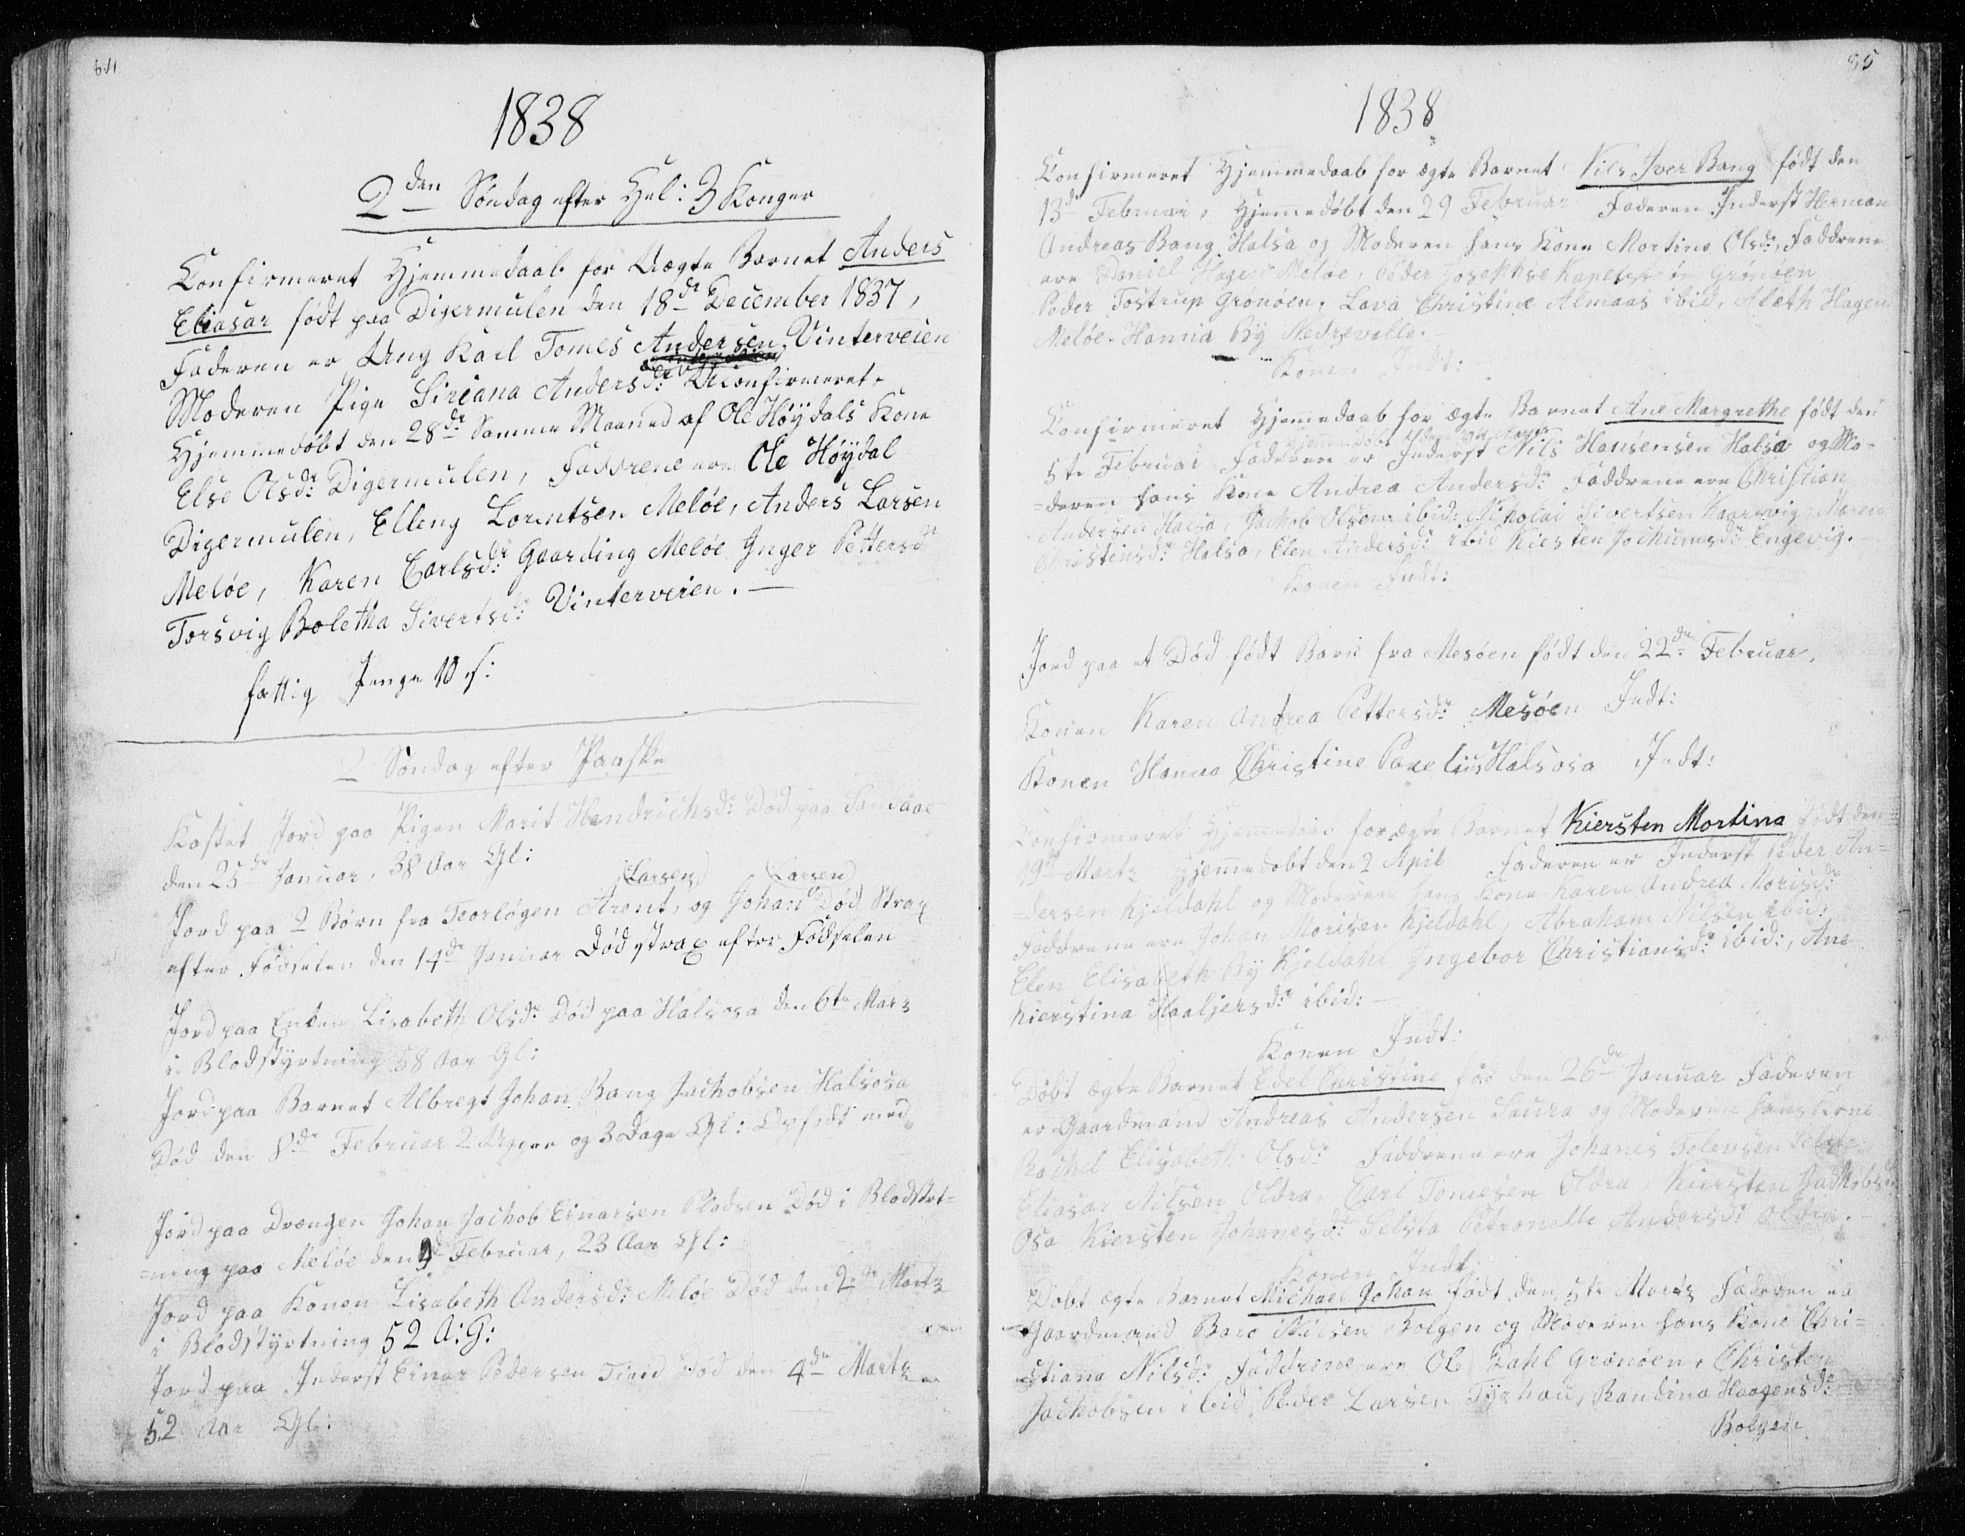 1838
2den Søndag efter Hel: 3 Konger
Confirmeret Hjemmedaab for Uægte Barnet Anders
Eliasar født paa Digermulen den 18de December 1837,
Faderen er Ung Karl Tomes Andersen, Vinterveien
Moderen Pige Siriana Andersdr: Uconfirmeret.
Hjemmedøbt den 28de Samme Maaned af Ole Høydals Kone
Else Olsdr: Digermulen, Faddrene ere Ole Høydal
Digermulen, Elleng Lorentsen Meløe, Anders Larsen
Meløe, Karen Carlsdr: Gaarding Meløe Inger Pettersdr
Torsvig Boletha Sivertsdr: Vinterveien. —
fattig Penge 10 s:
2 Søndag efter Paaske
Kastet Jord paa Pigen Marit Hendrichsdr: Død paa Sandaae
den 25de Januar, 38 Aar Gl:
(Larsen) (Larsen)
Jord paa 2 Børn fra Teorløgen Arent, og Johan Død Strax
efter Fødselen den 14de Januar Død strax efter Fødselen
Jord paa Enken Lisabeth Olsdr: Død paa Halsosa den 6te Marz
i Blodstyrtning 58 Aar Gl:
Jord paa Barnet Albregt Johan Bang Jachobsen Halsosa
Død den 8de Februar 2 Uger og 3 Dage Gl:
Jord paa Drængen Johan Jachob Einarsen Død i Blodstyrt-
-ning paa Meløe den 9de Februar, 23 Aar Gl:
Jord paa Konen Lisabeth Andersdr: Meløe Død den 2de Martz
i Blodstyrtning 52 A: G:
Jord paa Inderst Einar Pedersen Død den 4de Martz
52 Aar Gl:
85
1838
Confirmeret Hjemmedaab for ægte Barnet Nils Iver Bang født den
13de Februai, Hjemedøbt den 29 Februar Faderen Inderst Herman
Andreas Bang Halsa og Moderen hans Kone Martine Olsdr, Faddrene
ere Daniel Hagen Meløe, Peder Josephse Grønøen
Peder Tostrup Grønøen, Lava Christine Almaas ibid, Aleth Hagen
Meløe. Hanna By Nedrevelle. —
Konen Indt:
Confirmeret Hjemedaab for ægte Barnet Ane Margrethe født den
5te Februai Faderen er Inderst Nils Hansensen Halsa og Mo-
-deren hans Kone Andrea Andersdr: Faddrene ere Christian
Andersen Halsa, Jachob Olsen ibid: Nikolai Sivertsen Kaarsvig, Maren
Christensdr: Halsa, Elen Andersdr: ibid Kiersten Jochumsdr: Engevig. —
Konen Indt:
Jord paa et Død født Barn fra Mesøen født den 22de Februar,
Konen Karen Andrea Pettersdr: Mesøen Indt:
Konen Hanna Christine Parelius Halsosa Indt:
Confirmeret Hjemedaab for ægte Barnet Kiersten Martina født den
19de Martz Hjemmedøbt den 2 April Faderen er Inderst Peder An=
=dersen Kjeldahl og Moderen hans Kone Karen Andrea Morisdr:
Faddrene ere Johan Morisen Kjeldahl, Abraham Nilsen ibid:
Elen Elisabeth By Kjeldahl Ingebor Christiansdr: ibid:, Ane
Kierstina Haaljersdr: ibid: —
Konen Indt:
Døbt ægte Barnet Edel Christine fød den 26de Januar Faderen
er Gaardmand Andreas Andersen Saura og Moderen hans Kone
Rachel Elisabeth Olsdr: Faddrene ere Johanes
Eliasar Nilsen Oldra, Carl Tomesen Oldra, Kiersten Jachobsdr
Osa Kiersten Johanesdr: Petronelle Andersdr: Oldra.
Konen Indt:
Døbt ægte Barnet Michael Johan født den 5te Marts Faderen er
Gaardmand Baro Nilsen Bolgen og Moderen hans Kone Chri=
=stiana Nilsdr: Faddrene ere Ole Dahl Grønøen, Christen
Jachobsen ibid, Peder Larsen, Randina Haagensdr:
Bolgen